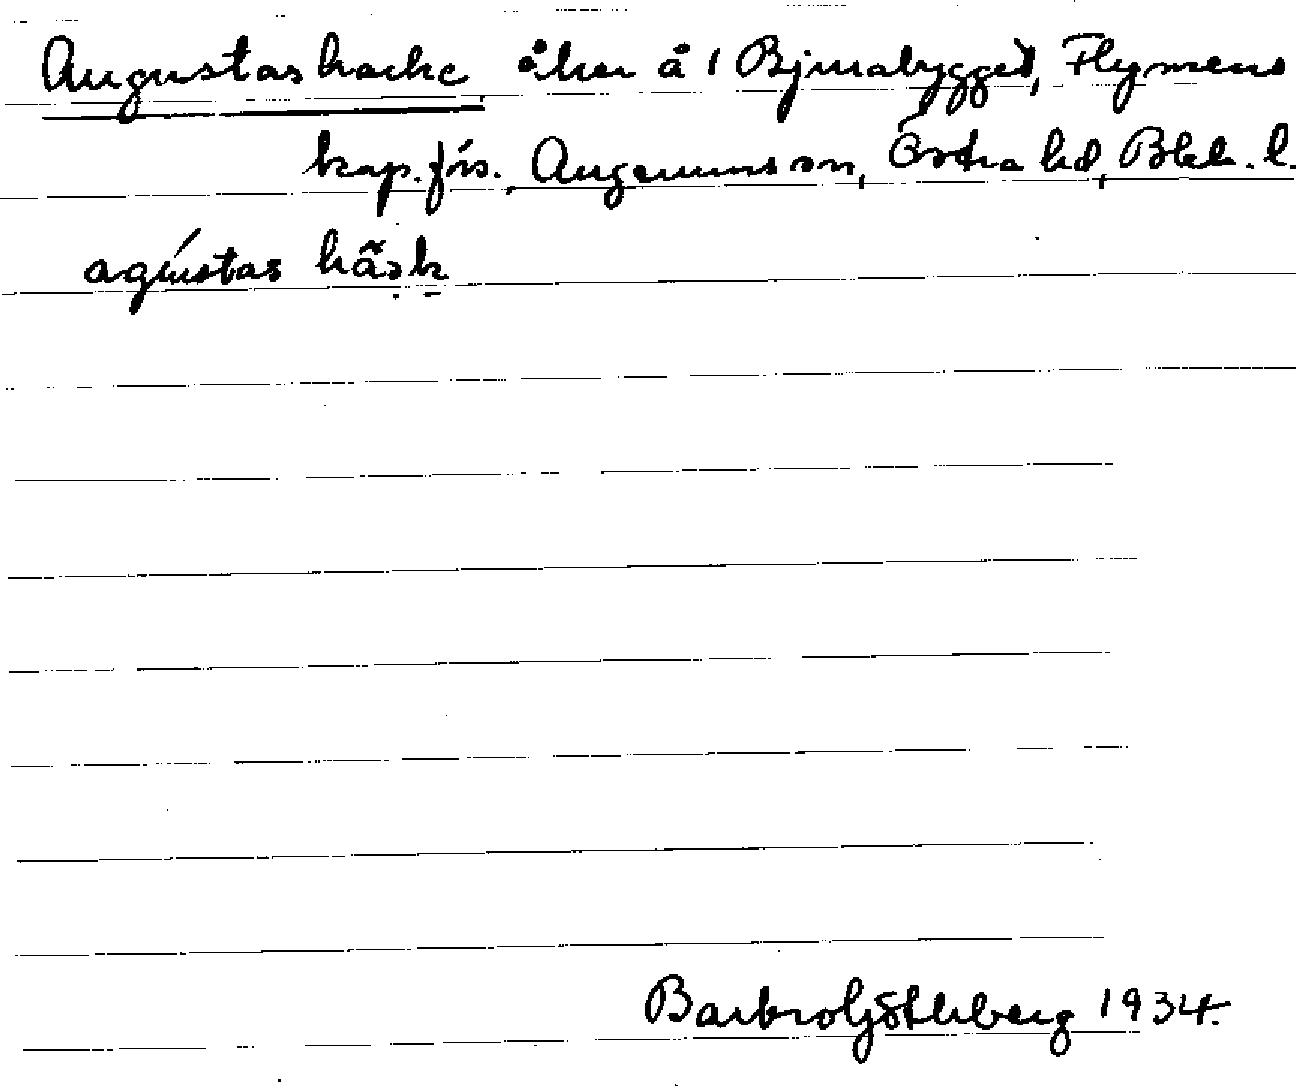 Augustas hacke åker å 1 Bjurabygget, Flymens
kap.förs., Augerums sn, Östra hd, Blek. l.
agústas håk
Barbro Götherberg 1934.